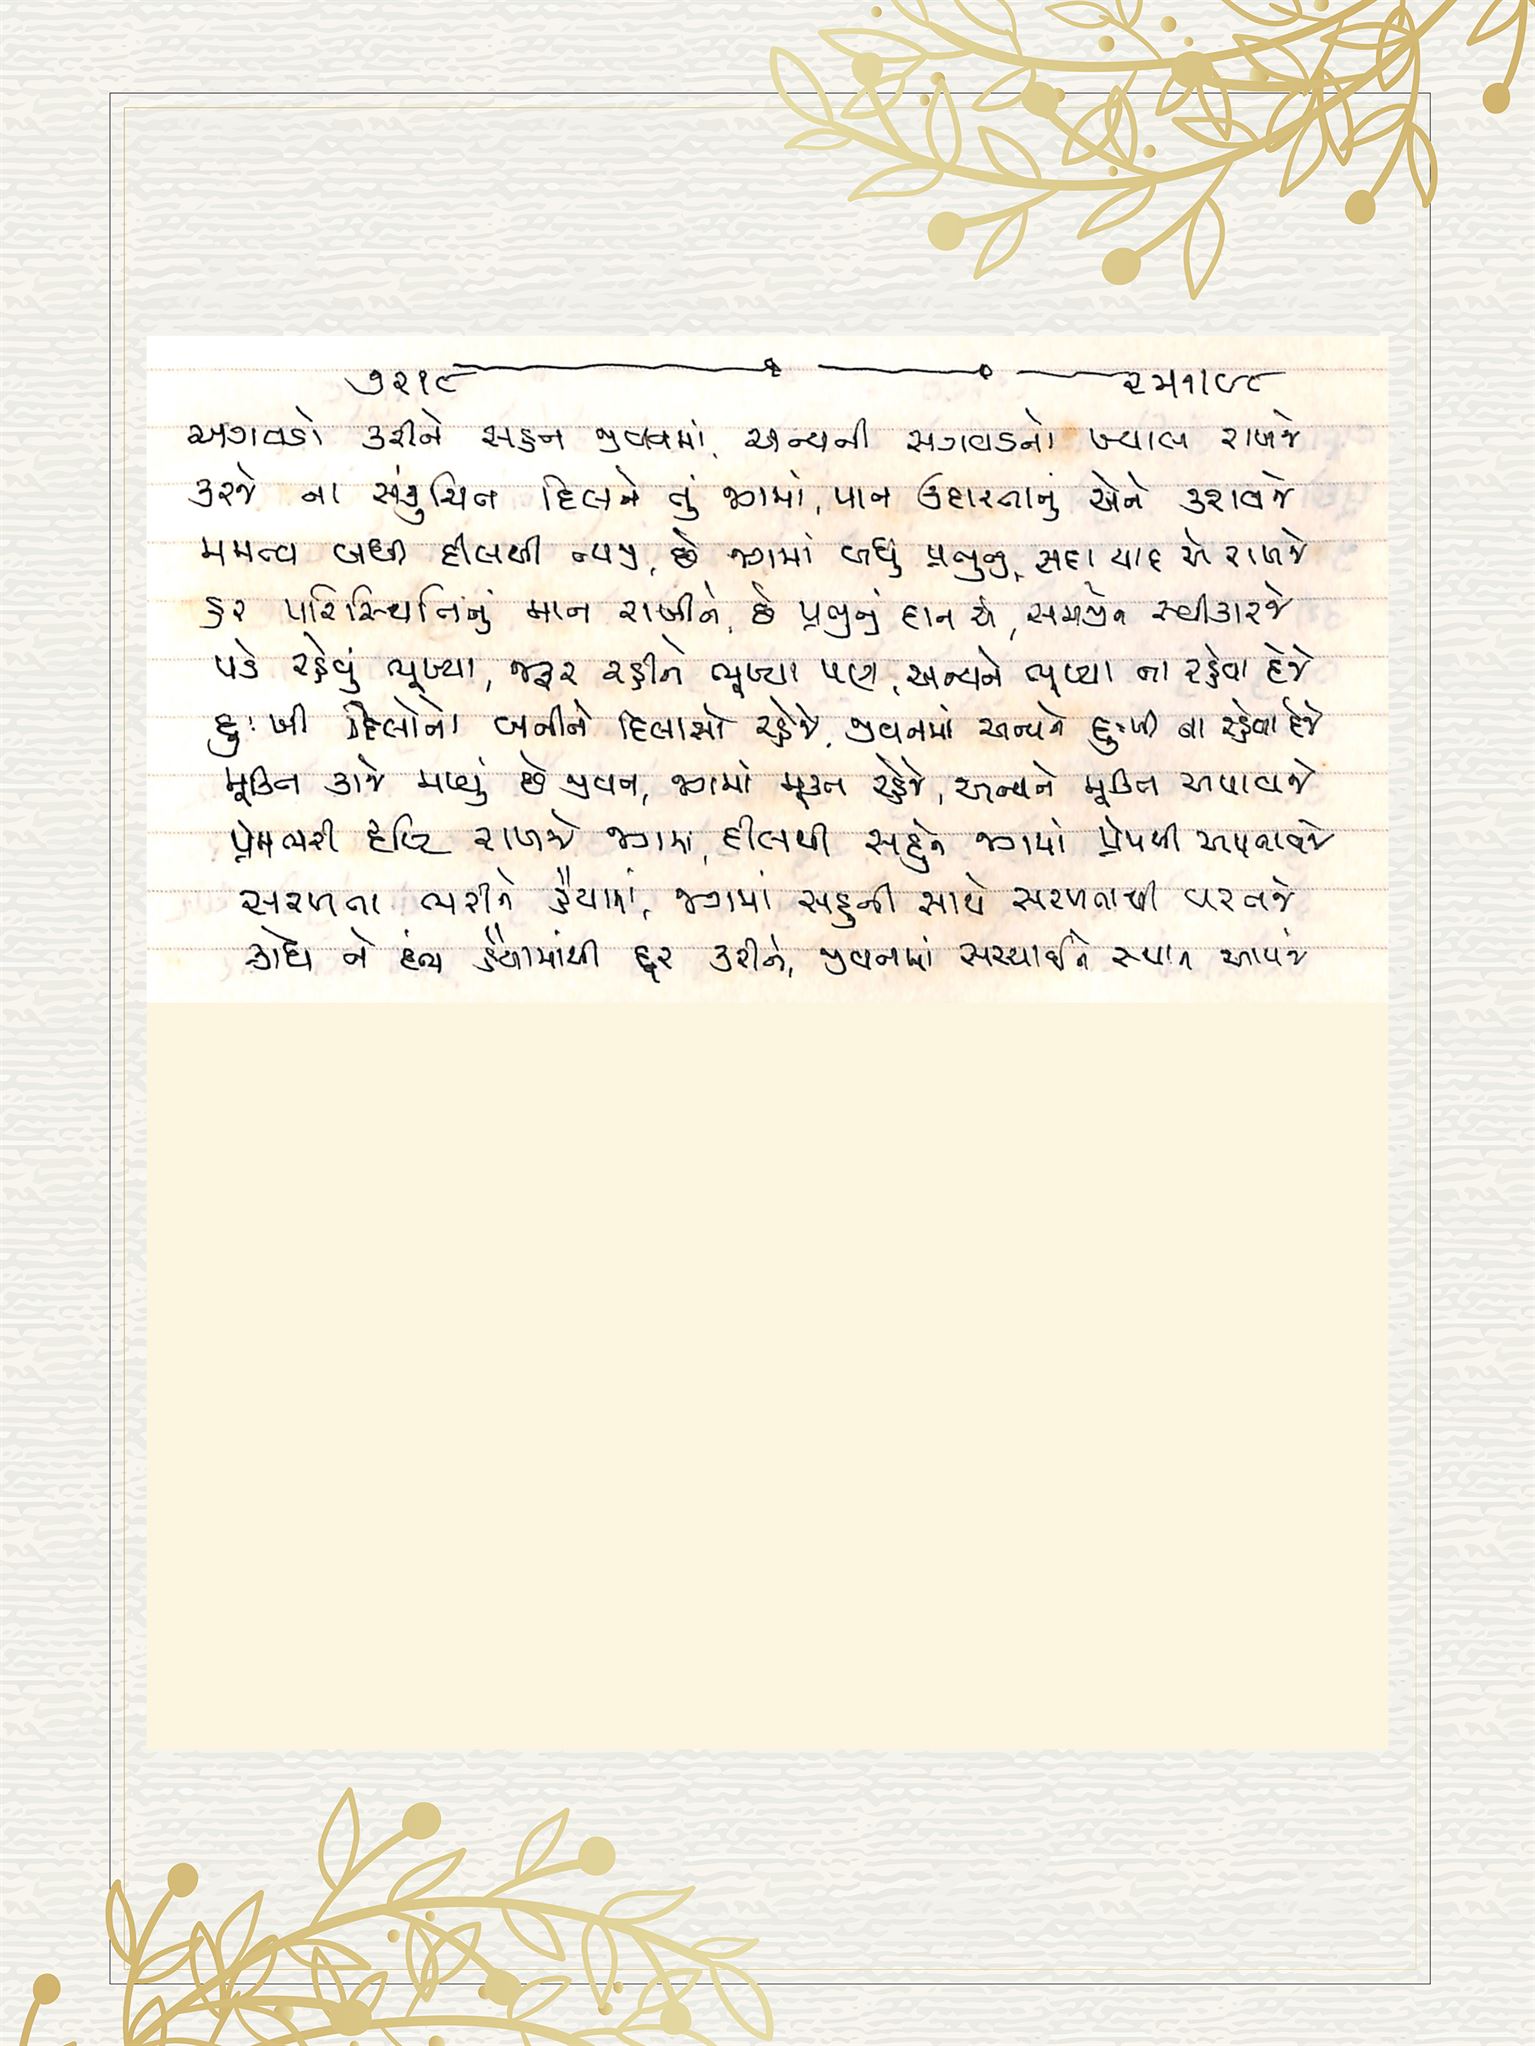 ૭૨૧૯
અગવડો કરીને સહન જીવનમાં, અન્યની સગવડનો ખ્યાલ રાખજે
કરજે ના સંકુચિત દિલને તું જગમાં, પાન ઉદારતાનું એને કરાવજે
મમત્વ બધી દીલથી ત્યજી, છે જગમાં બધું પ્રભુનું, સદા યાદ એ રાખજે
હર પરિસ્થિતિનું માન રાખીને, છે પ્રભુનું દાન એ, સમજીને સ્વીકારજે
પડે રહેવું ભૂખ્યા, જરૂર રહીને ભૂખ્યા પણ, અન્યને ભૂખ્યા ના રહેવા દેજે
દુઃખી દિલોનો બનીને દિલાસો રહેજે, જીવનમાં અન્યને દુઃખી ના રહેવા દેજે
મૂક્તિ કાજે મળ્યું છે જીવન, જગમાં મૂક્ત રહેજે, અન્યને મૂક્તિ અપાવજે
પ્રેમભરી દૃષ્ટિ રાખજે જગમાં, દીલથી સહુને જગમાં પ્રેમથી અપનાવજે
સરળતા ભરીને હૈયામાં, જગમાં સહુની સાથે સરળતાથી વરતજે
ક્રોધ ને દંભ હૈયામાંથી દૂર કરીને, જીવનમાં સચ્ચાઈને સ્થાન આપજે